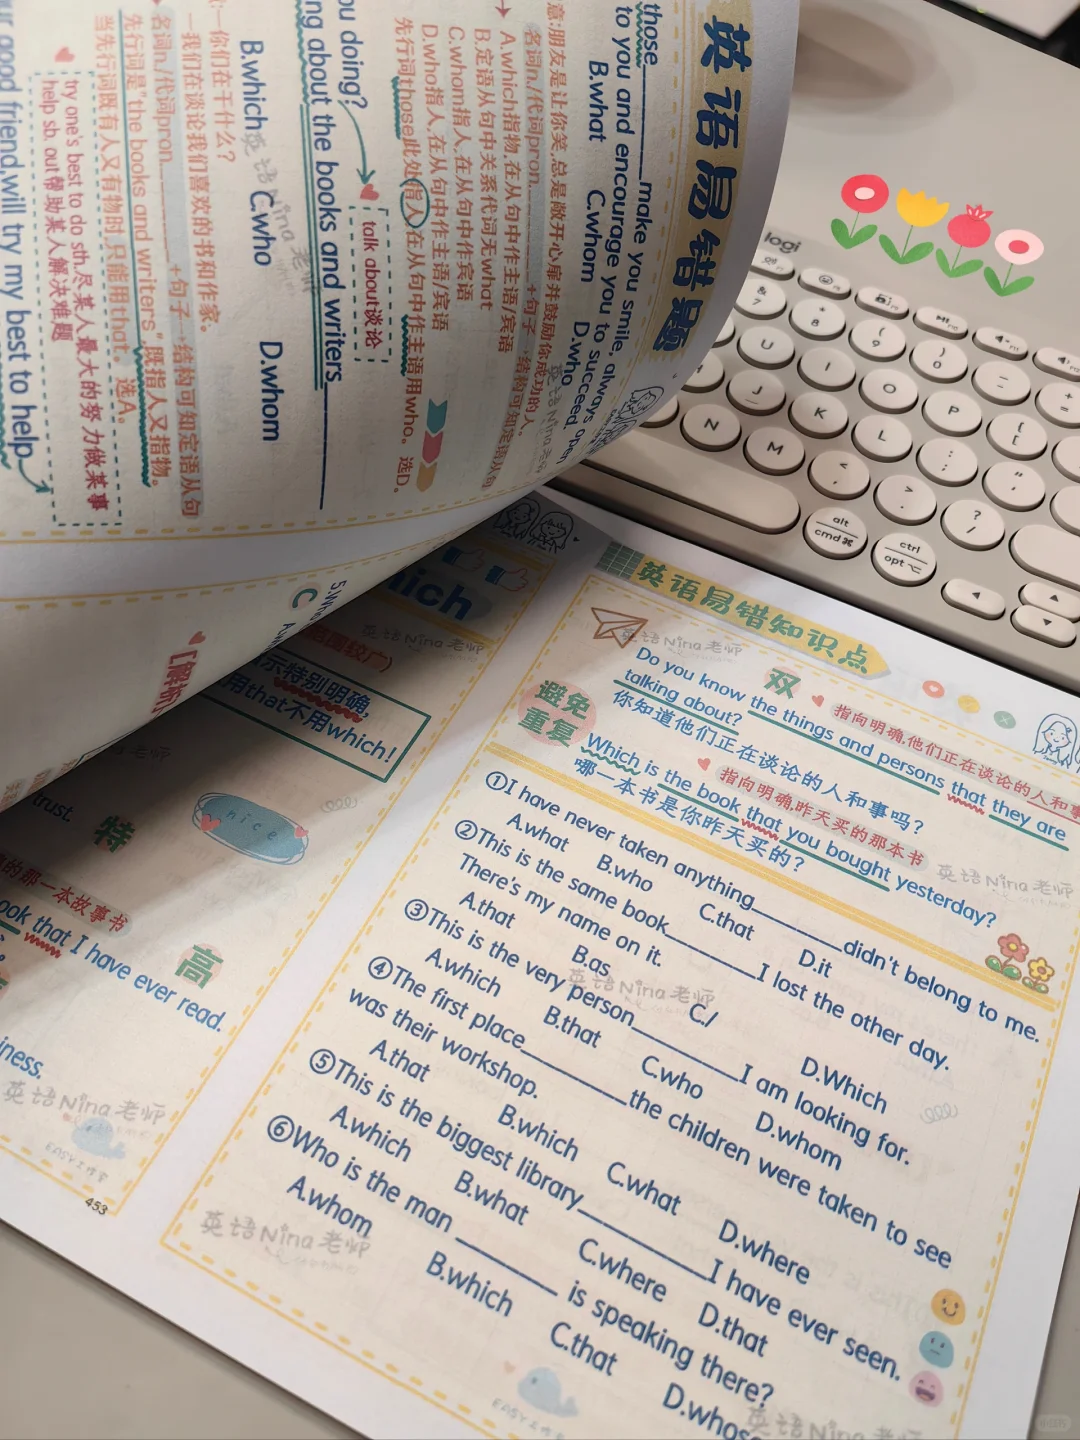 英语易错题
those______make you smile, always open
to you and encourage you to succeed.
B.what C.whom D.who
意:朋友是让你笑,总是敞开心扉并鼓励你成功的人。
名词n./代词pron.______+句子→结构可知定语从句
A.which指物,在从句中作主语/宾语
B.定语从句中关系代词无what
C.whom指人,在从句中作宾语
D.who指人,在从句中作主语/宾语
先行词those此处指人,在从句中作主语用who。选D。
ou doing?
talk about谈论
ng about the books and writers______
B.which C.who D.whom
一你们在干什么?
一我们在谈论我们喜欢的书和作家。
名词n./代词pron.______+句子→结构可知定语从句
先行词是"the books and writers",既指人又指物。
当先行词既有人又有物时,只能用that。选A。
try one's best to do sth.尽某人最大的努力做某事
help sb. out帮助某人解决难题
ur good friend,will try my best to help
5.Who
C
【解析
hich
范围较广)
示特别明确,
用that不用which!
trust.
特
nice
的那一本故事书
ook that I have ever read.
高
iness.
英语Nina老师
EASY工作室
453
英语易错知识点
英语Nina老师
双
指向明确,他们正在谈论的人和事
Do you know the things and persons that they are
talking about?
你知道他们正在谈论的人和事吗?
避免
重复
指向明确,昨天买的那本书
Which is the book that you bought yesterday?
哪一本书是你昨天买的?
英语Nina老师
①I have never taken anything______didn't belong to me.
A.what B.who C.that D.it
②This is the same book______I lost the other day.
There's my name on it.
A.that B.as C./ D.Which
③This is the very person______I am looking for.
A.which B.that C.who D.whom
英语Nina老师
④The first place______the children were taken to see
was their workshop.
A.that B.which C.what D.where
⑤This is the biggest library______I have ever seen.
A.which B.what C.where D.that
⑥Who is the man ______ is speaking there?
A.whom B.which C.that D.whos
英语Nina老师
EASY工作室
英语Nina老师
logi
& 7
* 8
( 9
) 0
U
I
O
P
J
K
L
N
M
alt
cmd ⌘
ctrl
opt ⌥